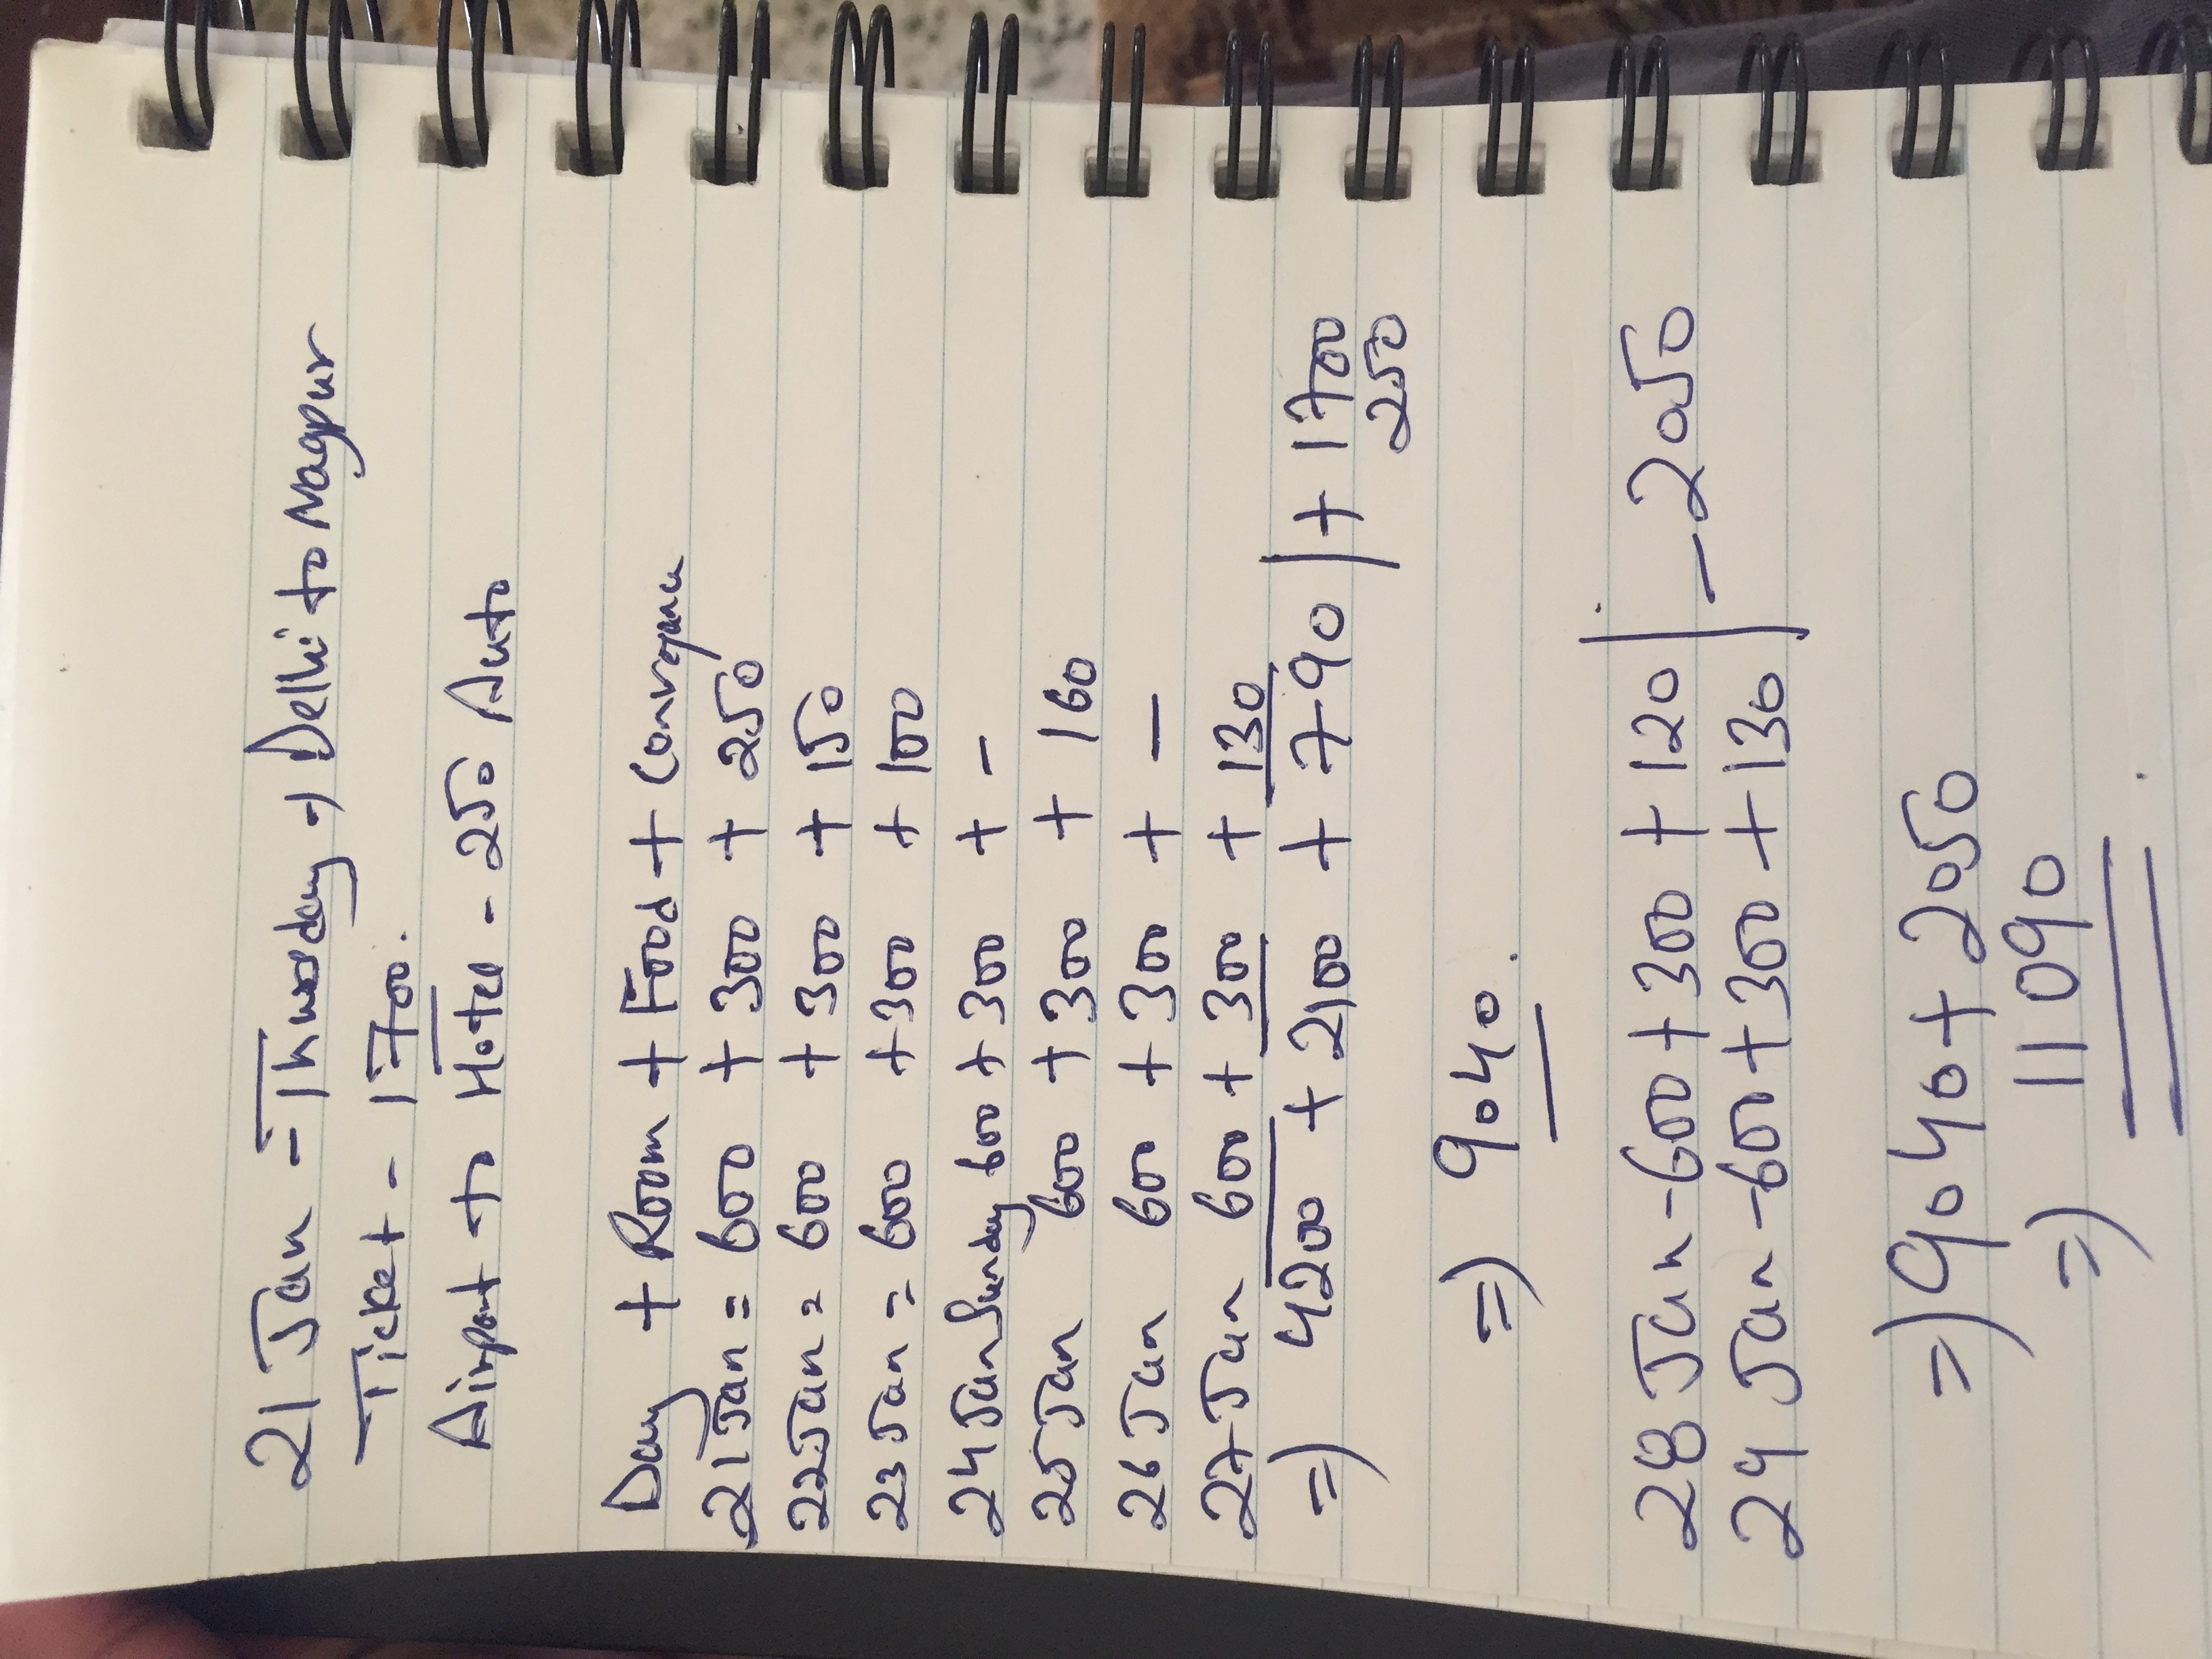 21 Jan - Thursday → Delhi to Nagpur
Ticket - 1700.
Airport → Hotel - 250 Auto
Day + Room + Food + Conveyance
21 Jan = 600 + 300 + 250
22 Jan = 600 + 300 + 150
23 Jan = 600 + 300 + 100
24 Jan Sunday 600 + 300 + -
25 Jan 600 + 300 + 160
26 Jan 600 + 300 + -
27 Jan 600 + 300 + 130
=) 4200 + 2100 + 790 | + 1700
250
=) 9040.
28 Jan - 600 + 300 + 120 | - 2050
29 Jan - 600 + 300 + 130 |
=) 9040 + 2050
=) 11090